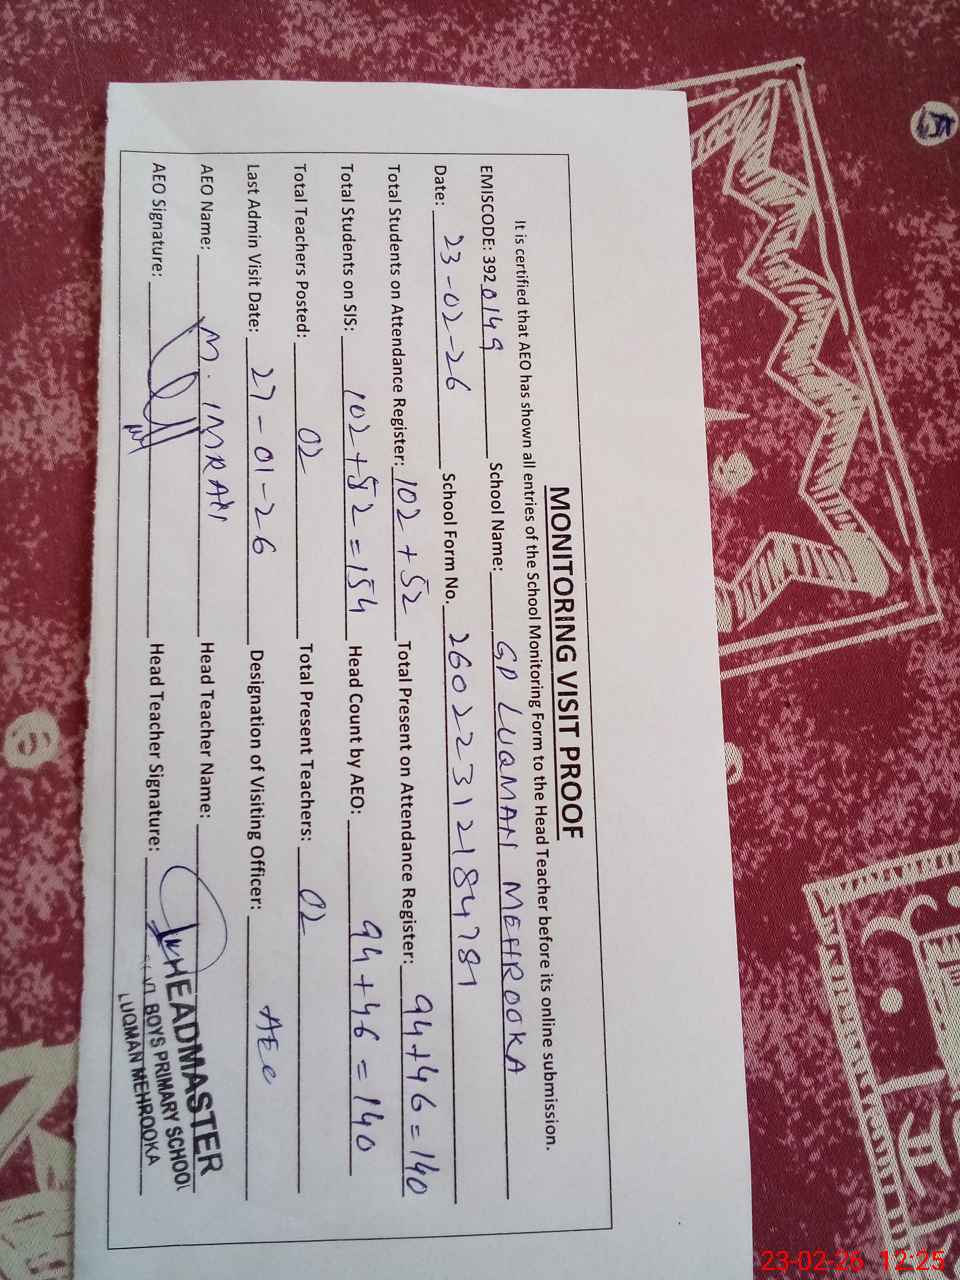 MONITORING VISIT PROOF
It is certified that AEO has shown all entries of the School Monitoring Form to the Head Teacher before its online submission.
EMISCODE: 3920149 School Name: GP LUQMAN MEHROOKA
Date: 23-02-26 School Form No. 26022312184781
Total Students on Attendance Register: 102+52 Total Present on Attendance Register: 94+46=140
Total Students on SIS: 102+52=154 Head Count by AEO: 94+46=140
Total Teachers Posted: 02 Total Present Teachers: 02
Last Admin Visit Date: 27-01-26 Designation of Visiting Officer: AEO
AEO Name: M. IMRAN Head Teacher Name:
AEO Signature: Head Teacher Signature:
HEADMASTER
BOYS PRIMARY SCHOOL
LUQMAN MEHROOKA
23-02-26 12:25